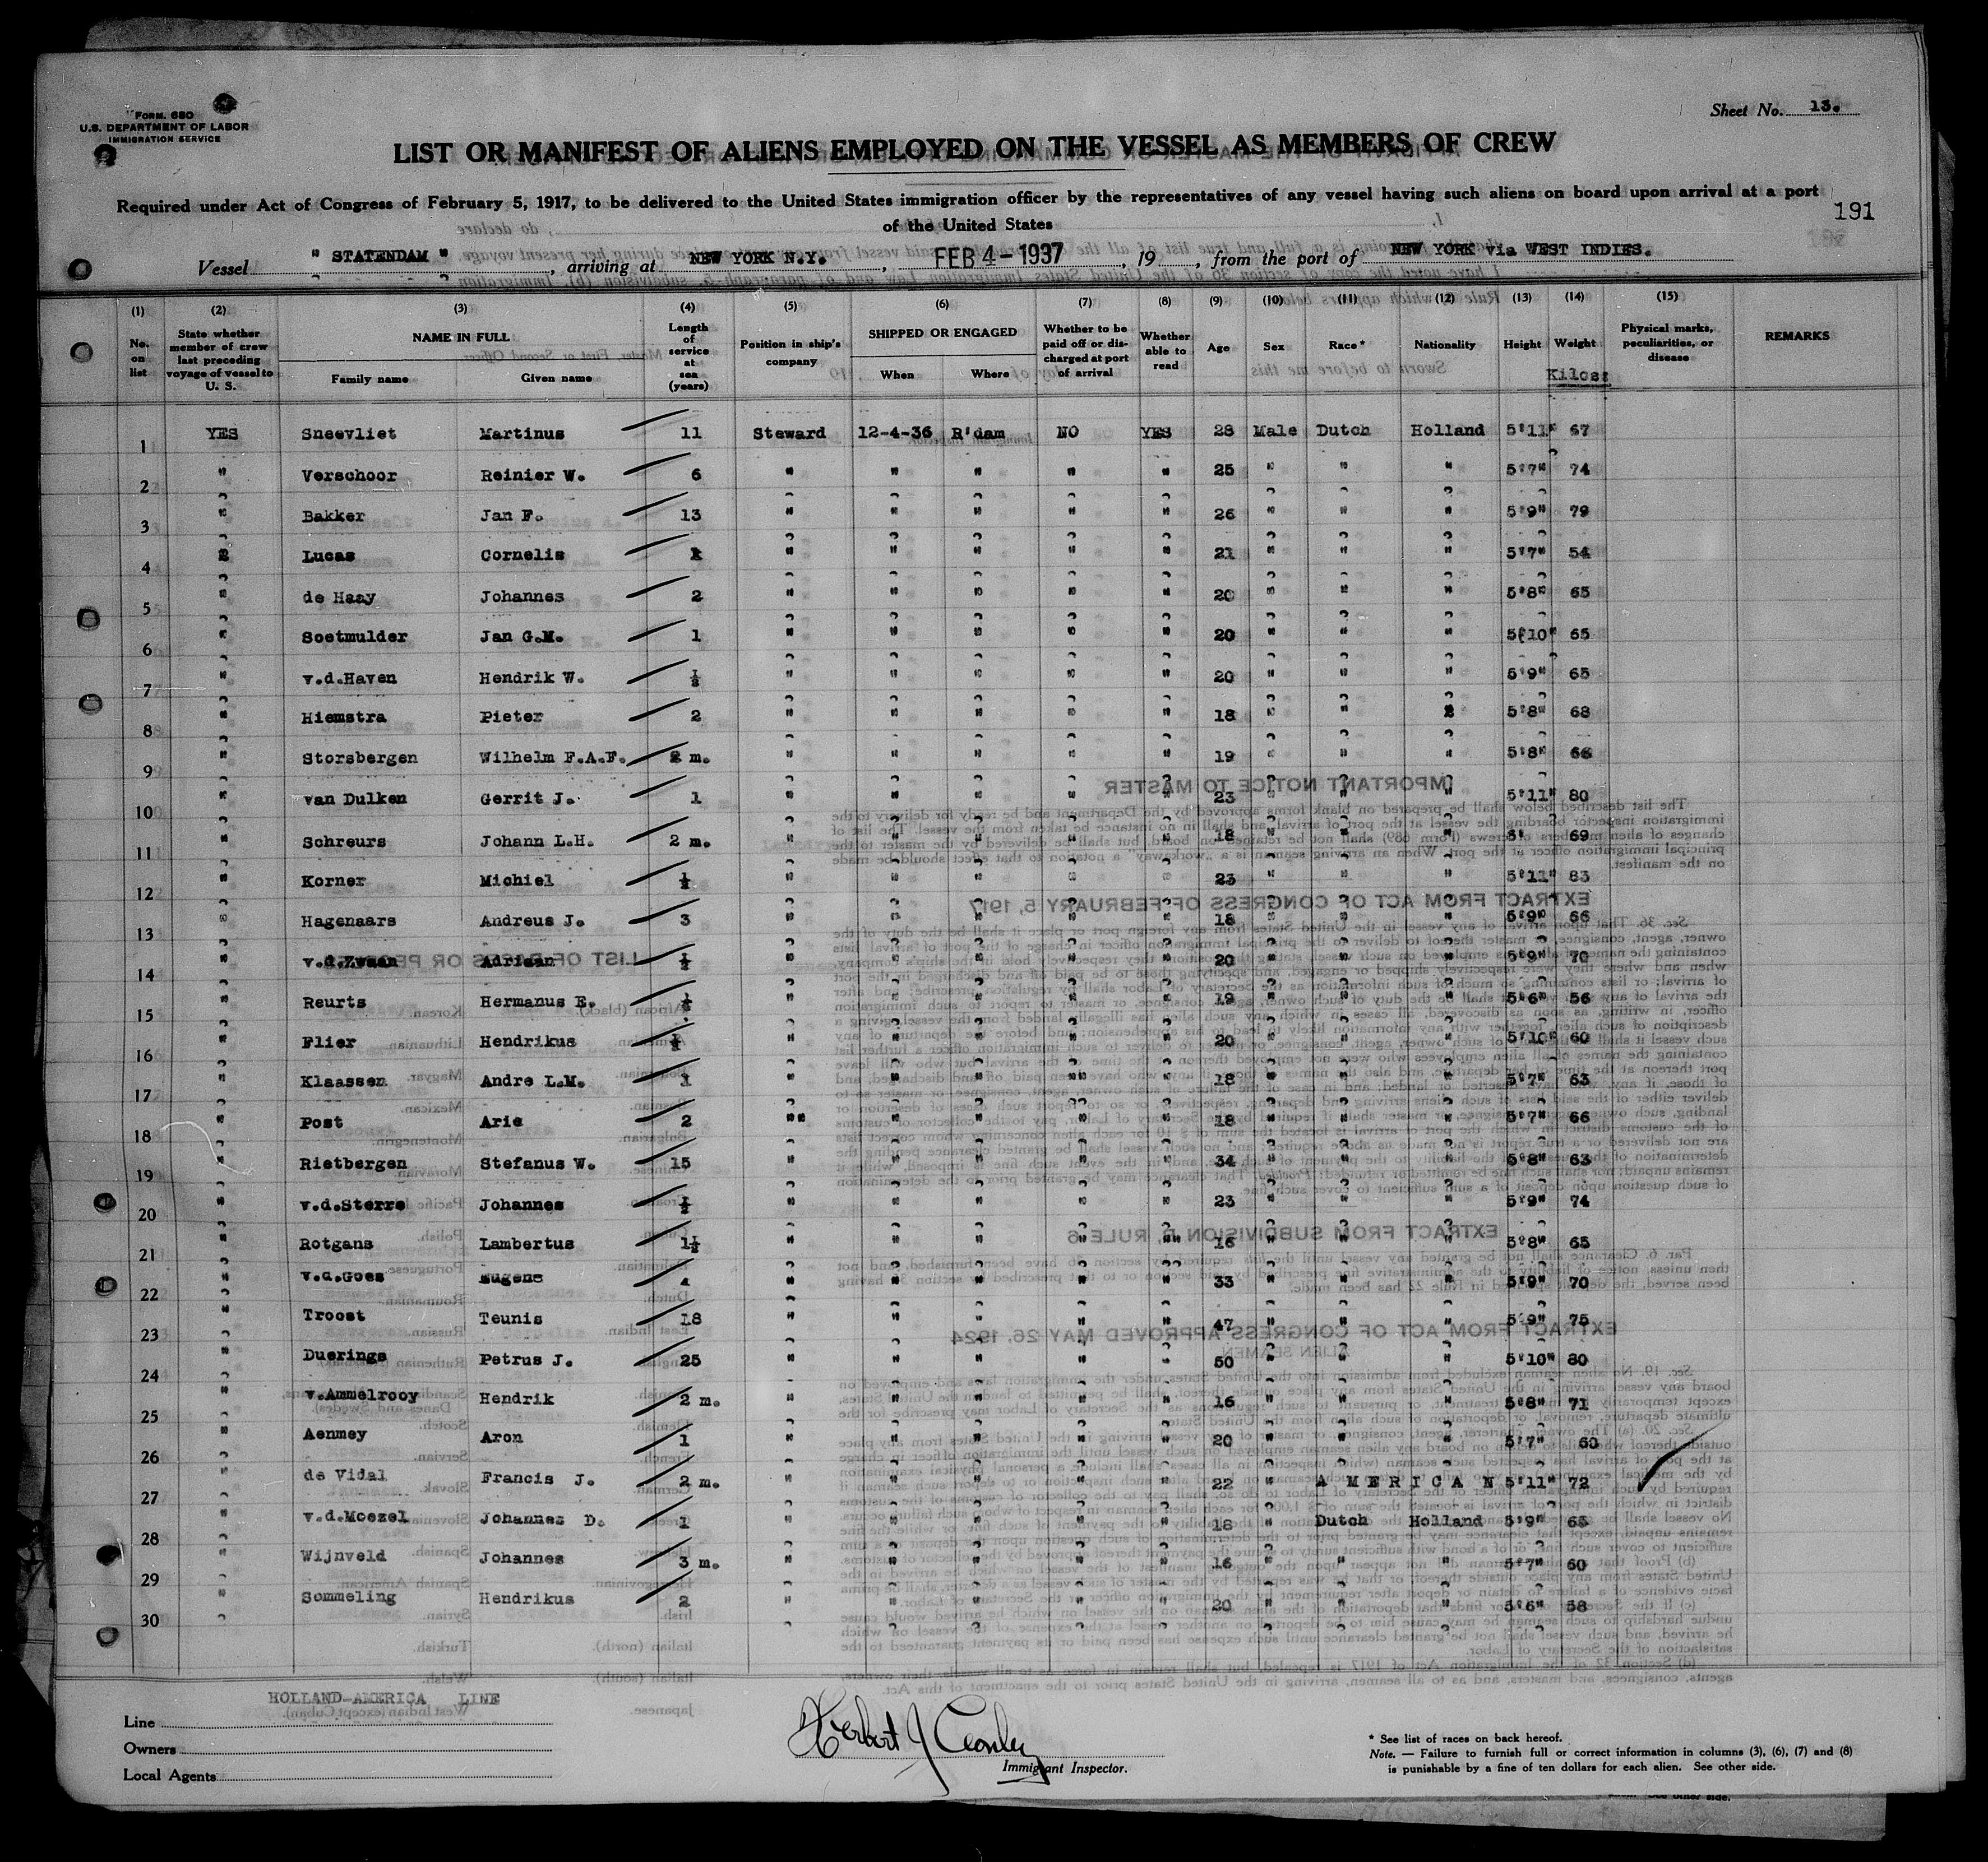 Form. 680
U.S. DEPARTMENT OF LABOR
IMMIGRATION SERVICE
Sheet No. 13.
LIST OR MANIFEST OF ALIENS EMPLOYED ON THE VESSEL AS MEMBERS OF CREW
Required under Act of Congress of February 5, 1917, to be delivered to the United States immigration officer by the representatives of any vessel having such aliens on board upon arrival at a port
of the United States
191
Vessel " STATENDAM ", arriving at NEW YORK N.Y., FEB 4 - 1937, 19, from the port of NEW YORK via WEST INDIES.
(1) (2) (3) (4) (5) (6) (7) (8) (9) (10) (11) (12) (13) (14) (15)
No. on list | State whether member of crew last preceding voyage of vessel to U. S. | NAME IN FULL Family name Given name | Length of service at sea (years) | Position in ship's company | SHIPPED OR ENGAGED When Where | Whether to be paid off or discharged at port of arrival | Whether able to read | Age | Sex | Race * | Nationality | Height | Weight Kilos: | Physical marks, peculiarities, or disease | REMARKS
1 YES Sneevliet Martinus 11 Steward 12-4-36 R'dam NO YES 28 Male Dutch Holland 5'11" 67
2 " Verschoor Reinier W. 6 " " " " " 25 " " " 5'7" 74
3 " Bakker Jan F. 13 " " " " " 26 " " " 5'9" 79
4 Lucas Cornelis " " " " " 21 " " " 5'7" 54
5 " de Haay Johannes 2 " " " " " 20 " " " 5'8" 65
6 " Soetmulder Jan G.M. 1 " " " " " 20 " " " 5'10" 65
7 " v.d.Haven Hendrik W. ½ " " " " " 20 " " " 5'9" 65
8 " Hiemstra Pieter 2 " " " " " 18 " " 5'8" 68
9 " Storsbergen Wilhelm F.A.F. 2 m. " " " " " 19 " " " 5'8" 66
10 " van Dulken Gerrit J. 1 " " " " " 23 " " " 5'11" 80
11 " Schreurs Johann L.H. 2 m. " " " " " 18 " " " 6' 69
12 " Korner Michiel ½ " " " " " 23 " " " 5'11" 83
13 " Hagenaars Andreus J. 3 " " " " " 18 " " " 5'9" 66
14 " v.d.Zwaan Adriaan ½ " " " " " 20 " " " 5'9" 70
15 " Reurts Hermanus E. ½ " " " " " 19 " " " 5'6" 56
16 " Flier Hendrikus ½ " " " " " 20 " " " 5'10" 60
17 " Klaassen Andre L.M. 1 " " " " " 18 " " " 5'7" 63
18 " Post Arie 2 " " " " " 18 " " " 5'7" 66
19 " Rietbergen Stefanus W. 15 " " " " " 34 " " " 5'8" 63
20 " v.d.Sterre Johannes ½ " " " " " 23 " " " 5'9" 74
21 " Rotgans Lambertus 1½ " " " " " 16 " " " 5'8" 65
22 " v.d.Goes Eugene " " " " " 33 " " " 5'9" 70
23 " Troost Teunis 18 " " " " " 47 " " " 5'9" 75
24 " Duerings Petrus J. 25 " " " " " 50 " " " 5'10" 80
25 " v.Ammelrooy Hendrik 2 m. " " " " " 16 " " " 5'8" 71
26 " Aenmey Aron 1 " " " " " 20 " " " 5'7" 60
27 " de Vidal Francis J. 2 m. " " " " " 22 " AMERICAN 5'11" 72
28 " v.d.Moezel Johannes D. 1 " " " " " 18 " Dutch Holland 5'9" 65
29 " Wijnveld Johannes 3 m. " " " " " 16 " " " 5'7" 60
30 " Sommeling Hendrikus 2 " " " " " 20 " " " 5'6" 58
Line HOLLAND-AMERICA LINE
Owners
Local Agents
Herbert J
Immigrant Inspector.
* See list of races on back hereof.
Note. — Failure to furnish full or correct information in columns (3), (6), (7) and (8)
is punishable by a fine of ten dollars for each alien. See other side.